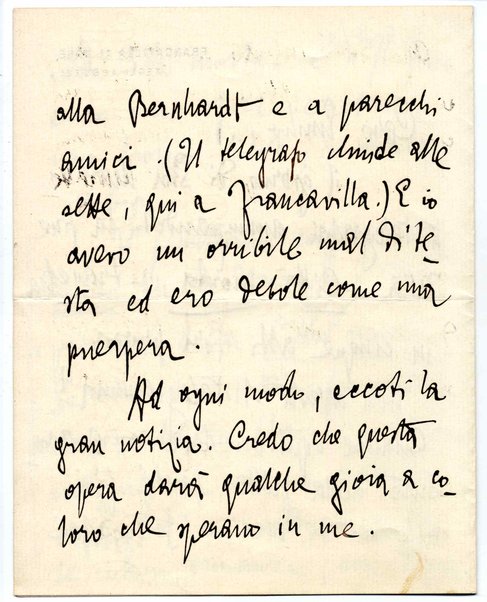 alla Bernhardt e a parecchi
amici. (Il telegrafo chiude alle
sette, qui a Francavilla.) E io
avevo un orribile mal di te-
sta ed ero debole come una
puerpera.
Ad ogni modo, eccoti la
gran notizia. Credo che questa
opera darà qualche gioia a co-
loro che sperano in me.